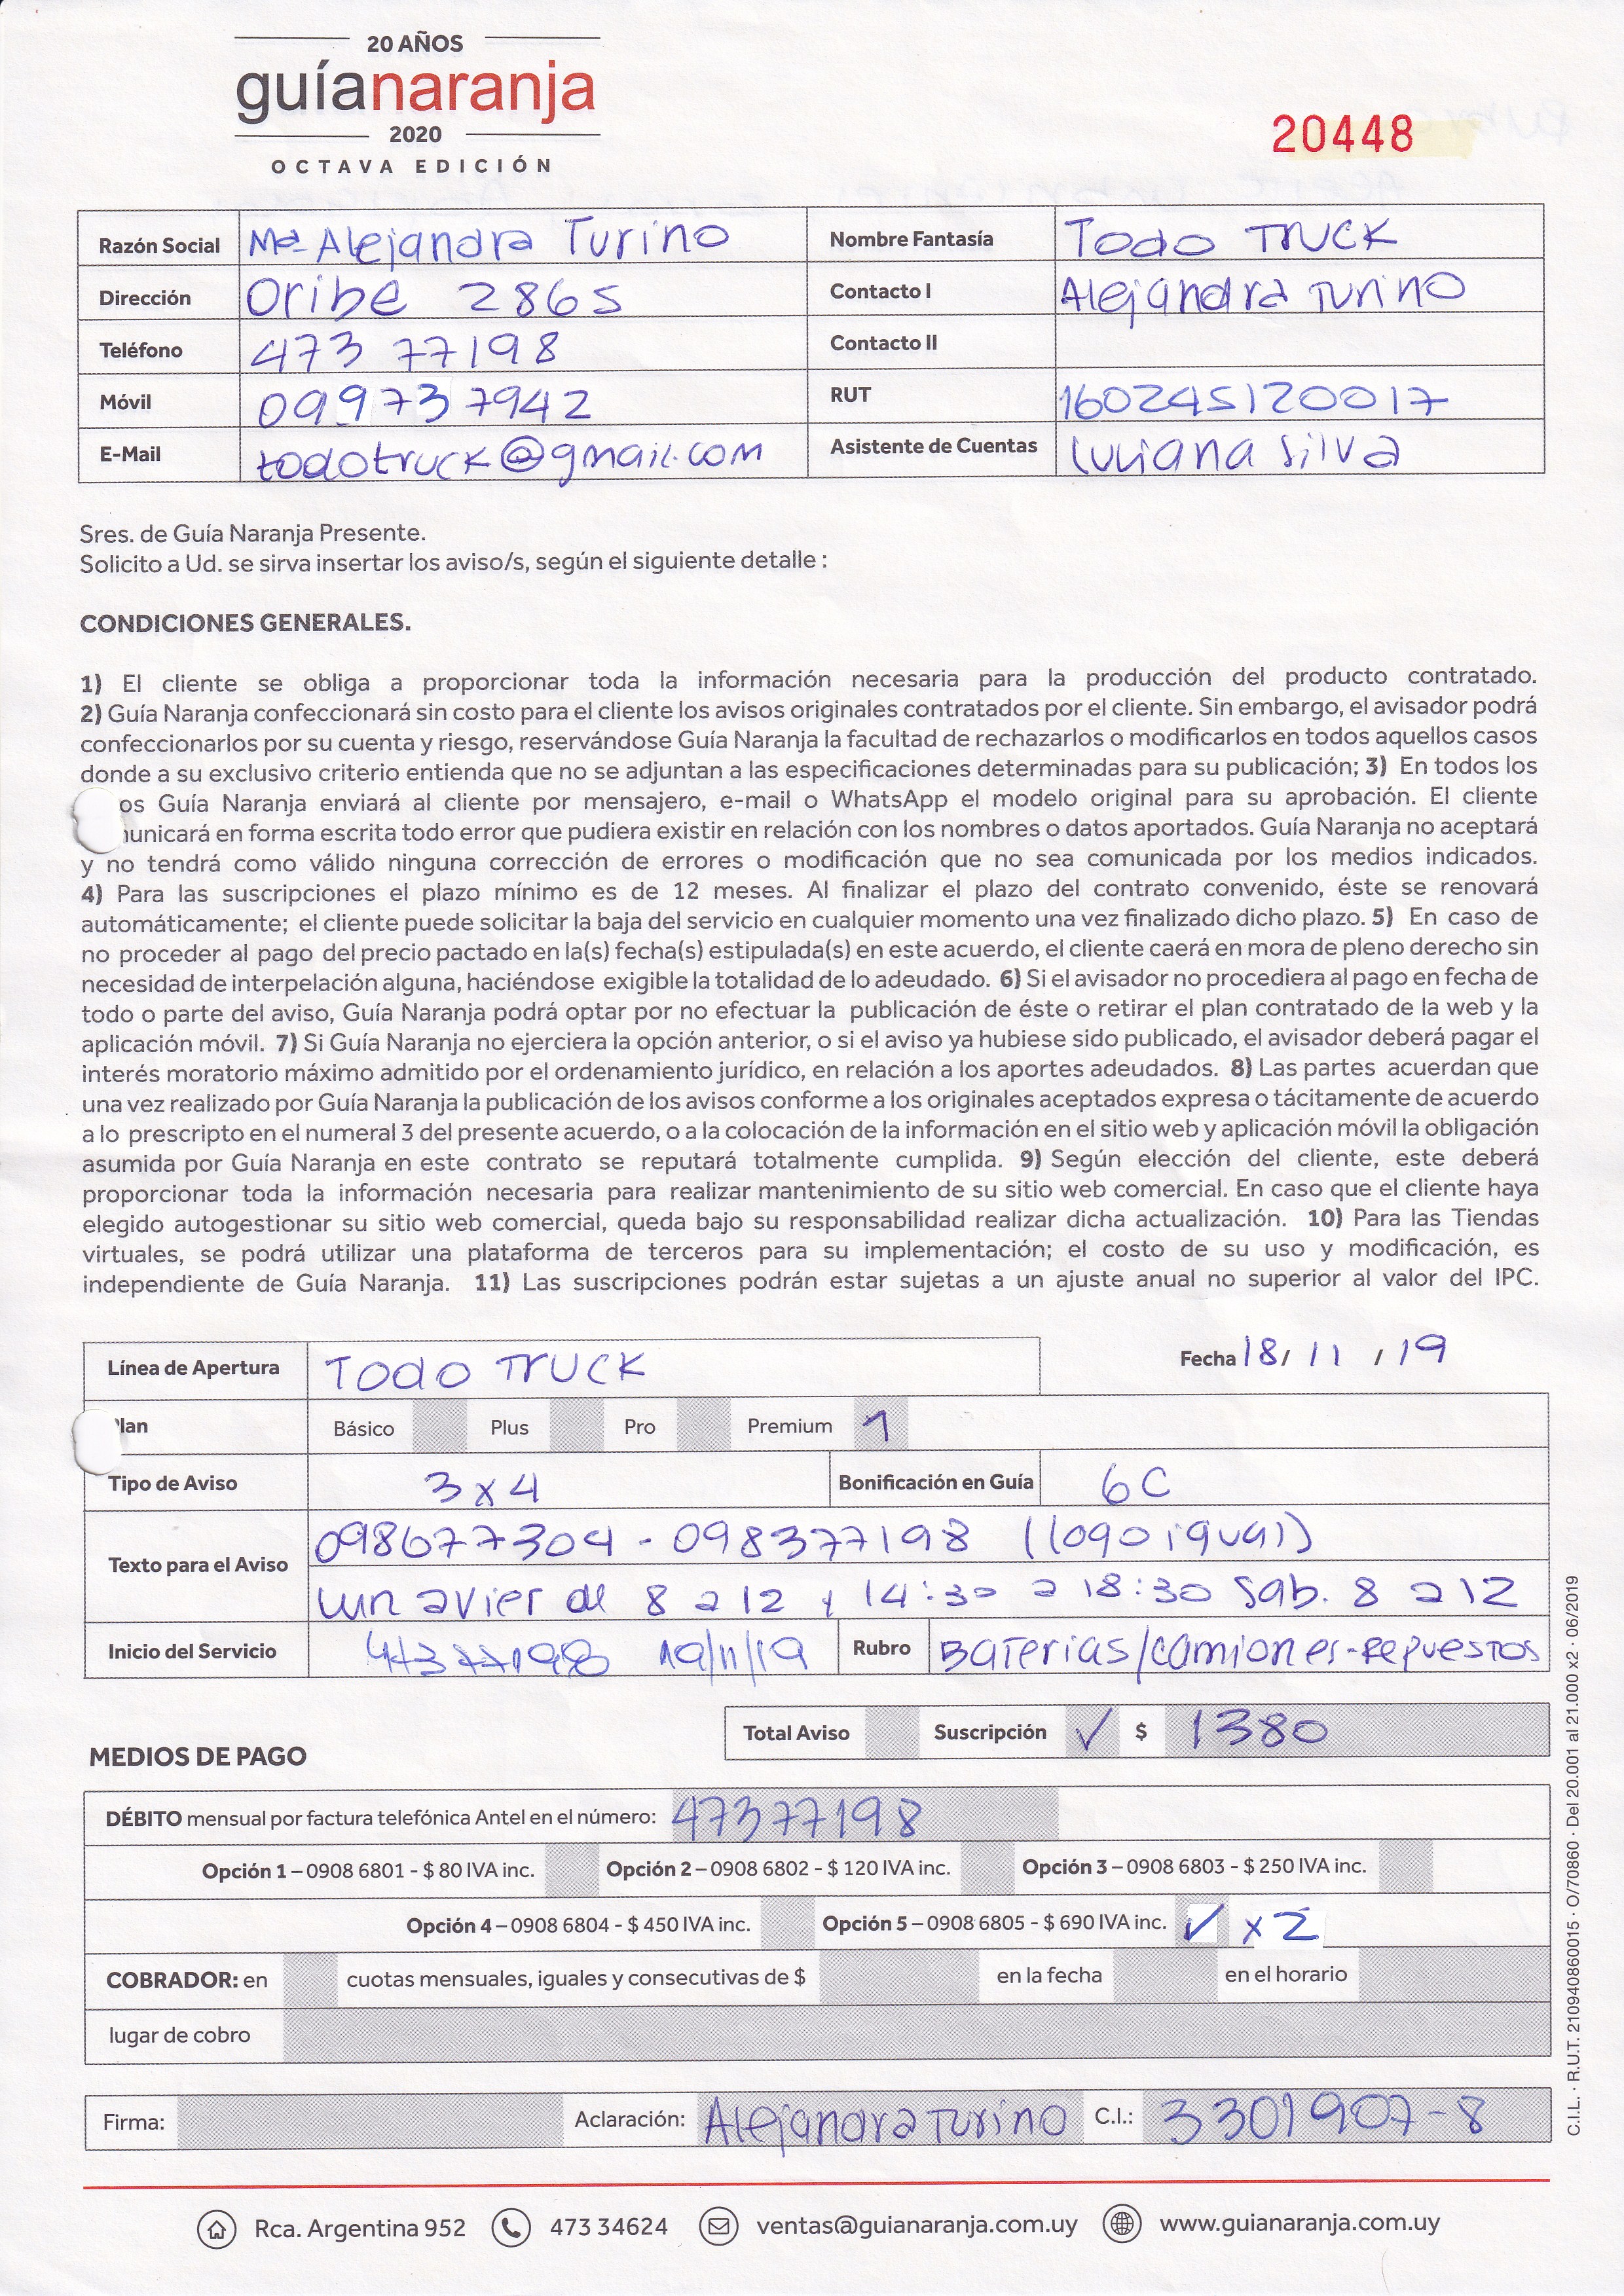 20 AÑOS
guíanaranja
2020
OCTAVA EDICIÓN
20448
Razón Social Ma Alejandra Turino Nombre Fantasía Todo TRUCK
Dirección Oribe 2865 Contacto I Alejandra Turino
Teléfono 473 77198 Contacto II
Móvil 099737942 RUT 160245120017
E-Mail todotruck@gmail.com Asistente de Cuentas Luciana Silva
Sres. de Guía Naranja Presente.
Solicito a Ud. se sirva insertar los aviso/s, según el siguiente detalle :
CONDICIONES GENERALES.
1) El cliente se obliga a proporcionar toda la información necesaria para la producción del producto contratado.
2) Guía Naranja confeccionará sin costo para el cliente los avisos originales contratados por el cliente. Sin embargo, el avisador podrá
confeccionarlos por su cuenta y riesgo, reservándose Guía Naranja la facultad de rechazarlos o modificarlos en todos aquellos casos
donde a su exclusivo criterio entienda que no se adjuntan a las especificaciones determinadas para su publicación; 3) En todos los
os Guía Naranja enviará al cliente por mensajero, e-mail o WhatsApp el modelo original para su aprobación. El cliente
unicará en forma escrita todo error que pudiera existir en relación con los nombres o datos aportados. Guía Naranja no aceptará
y no tendrá como válido ninguna corrección de errores o modificación que no sea comunicada por los medios indicados.
4) Para las suscripciones el plazo mínimo es de 12 meses. Al finalizar el plazo del contrato convenido, éste se renovará
automáticamente; el cliente puede solicitar la baja del servicio en cualquier momento una vez finalizado dicho plazo. 5) En caso de
no proceder al pago del precio pactado en la(s) fecha(s) estipulada(s) en este acuerdo, el cliente caerá en mora de pleno derecho sin
necesidad de interpelación alguna, haciéndose exigible la totalidad de lo adeudado. 6) Si el avisador no procediera al pago en fecha de
todo o parte del aviso, Guía Naranja podrá optar por no efectuar la publicación de éste o retirar el plan contratado de la web y la
aplicación móvil. 7) Si Guía Naranja no ejerciera la opción anterior, o si el aviso ya hubiese sido publicado, el avisador deberá pagar el
interés moratorio máximo admitido por el ordenamiento jurídico, en relación a los aportes adeudados. 8) Las partes acuerdan que
una vez realizado por Guía Naranja la publicación de los avisos conforme a los originales aceptados expresa o tácitamente de acuerdo
a lo prescripto en el numeral 3 del presente acuerdo, o a la colocación de la información en el sitio web y aplicación móvil la obligación
asumida por Guía Naranja en este contrato se reputará totalmente cumplida. 9) Según elección del cliente, este deberá
proporcionar toda la información necesaria para realizar mantenimiento de su sitio web comercial. En caso que el cliente haya
elegido autogestionar su sitio web comercial, queda bajo su responsabilidad realizar dicha actualización. 10) Para las Tiendas
virtuales, se podrá utilizar una plataforma de terceros para su implementación; el costo de su uso y modificación, es
independiente de Guía Naranja. 11) Las suscripciones podrán estar sujetas a un ajuste anual no superior al valor del IPC.
Línea de Apertura TODO TRUCK Fecha 18/ 11 / 19
lan Básico Plus Pro Premium 1
Tipo de Aviso 3 x 4 Bonificación en Guía 6C
Texto para el Aviso 098677304 - 098377198 (logo igual)
Lun a vier de 8 a 12 y 14:30 a 18:30 Sab. 8 a 12
Inicio del Servicio 47377198 19/11/19 Rubro Baterias/camiones-Repuestos
Total Aviso Suscripción ✓ $ 1380
MEDIOS DE PAGO
DÉBITO mensual por factura telefónica Antel en el número: 47377198
Opción 1 – 0908 6801 - $ 80 IVA inc. Opción 2 – 0908 6802 - $ 120 IVA inc. Opción 3 – 0908 6803 - $ 250 IVA inc.
Opción 4 – 0908 6804 - $ 450 IVA inc. Opción 5 – 0908 6805 - $ 690 IVA inc. ✓ x 2
COBRADOR: en cuotas mensuales, iguales y consecutivas de $ en la fecha en el horario
lugar de cobro
Firma: Aclaración: Alejandra Turino C.I.: 3301907-8
Rca. Argentina 952 473 34624 ventas@guianaranja.com.uy www.guianaranja.com.uy
C.I.L. · R.U.T. 210940860015 · O/70860 · Del 20.001 al 21.000 x2 · 06/2019